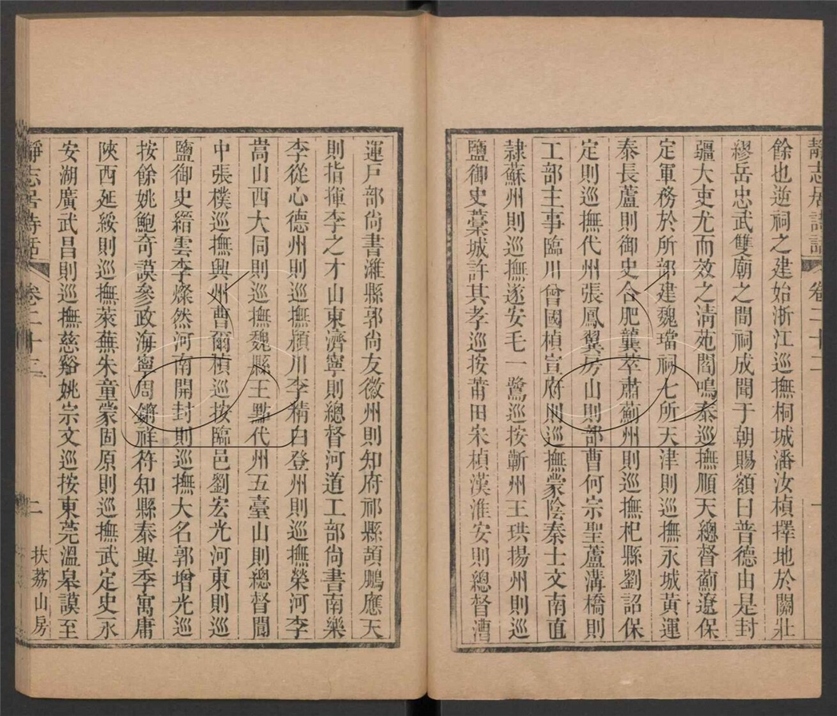 靜志居詩話 卷二十二 一
餘也逆祠之建始浙江巡撫桐城潘汝楨擇地於關壯
繆岳忠武雙廟之間祠成聞于朝賜額曰普德由是封
疆大吏尤而效之淸苑閻鳴泰巡撫順天總督薊遼保
定軍務於所部建魏璫祠七所天津則巡撫永城黃運
泰長蘆則御史合肥龔萃肅薊州則巡撫杞縣劉詔保
定則巡撫代州張鳳翼房山則部曹何宗聖蘆溝橋則
工部主事臨川曾國楨宣府則巡撫蒙陰秦士文南直
隸蘇州則巡撫遂安毛一鷺巡按蘄州王珙揚州則巡
鹽御史藁城許其孝巡按莆田宋楨漢淮安則總督漕
運戸部尙書濰縣郭尙友徽州則知府祁縣頡鵬應天
則指揮李之才山東濟寧則總督河道工部尙書南樂
李從心德州則巡撫潁川李精白登州則巡撫榮河李
嵩山西大同則巡撫魏縣王點代州五臺山則總督聞
中張樸巡撫興州曹爾楨巡按臨邑劉宏光河東則巡
鹽御史縉雲李燦然河南開封則巡撫大名郭增光巡
按餘姚鮑奇謨參政海寧周鏘祥符知縣泰興季寓庸
陝西延綏則巡撫萊蕪朱童蒙固原則巡撫武定史永
安湖廣武昌則巡撫慈谿姚宗文巡按東莞溫皋謨至
靜志居詩話 卷二十二 二 扶荔山房